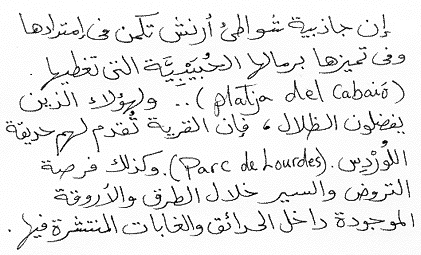 إن جاذبية شواطئ أرنش تكمن في إمتدادها
وفي تميزها برمالها الحُبَيْبِيَّة التي تغطيها.
(platja del Cabaió).. ولهؤلاء الذين
يفضلون الظلال، فإن القرية تُقدم لهم حديقة
اللُورْدِس. (Parc de Lourdes). وكذلك فرصة
التروض والسير خلال الطرق والأروقة
الموجودة داخل الحدائق والغابات المنتشرة فيها.